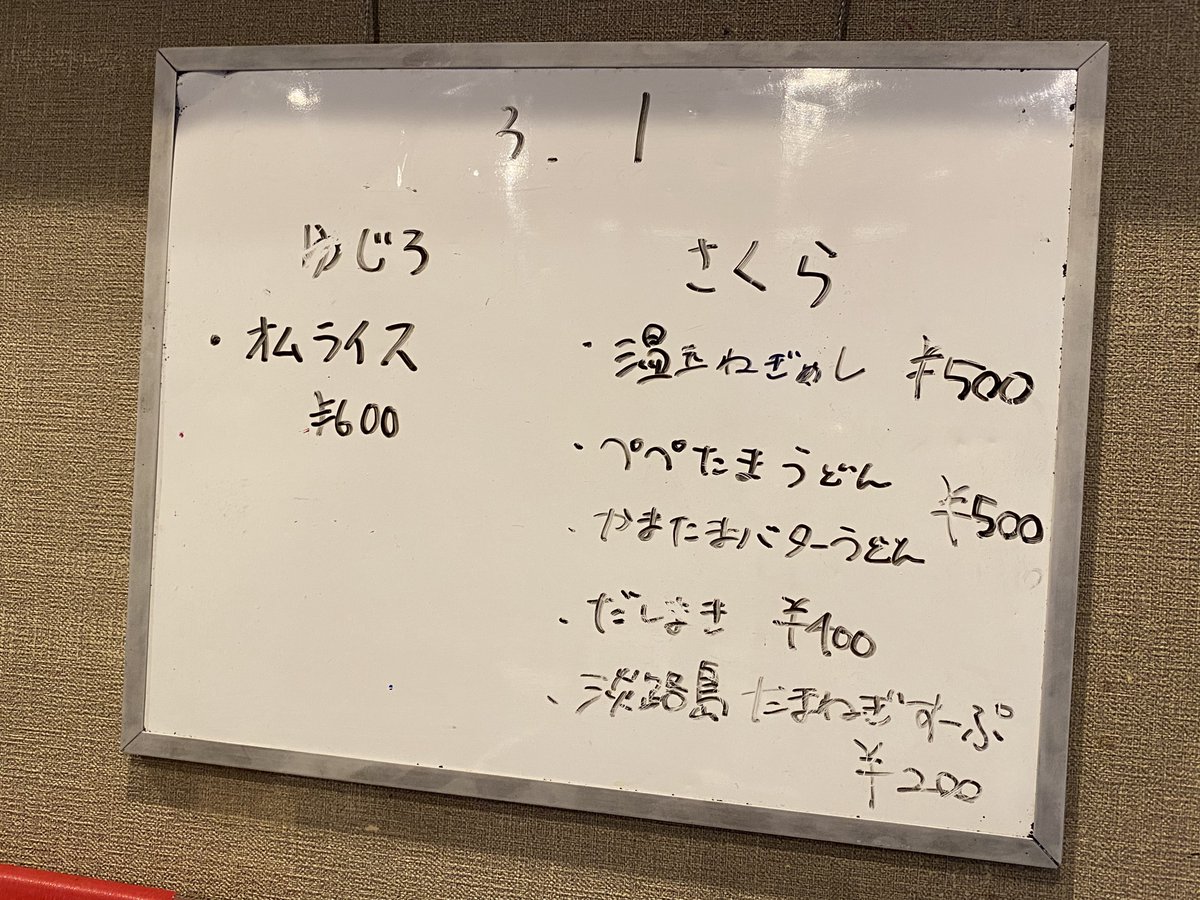 3.1
ゆじろ
・オムライス
¥600
さくら
・温玉ねぎめし ¥500
・ペペたまうどん
¥500
・かまたまバターうどん
・だしまき ¥400
・淡路島たまねぎすーぷ
¥200